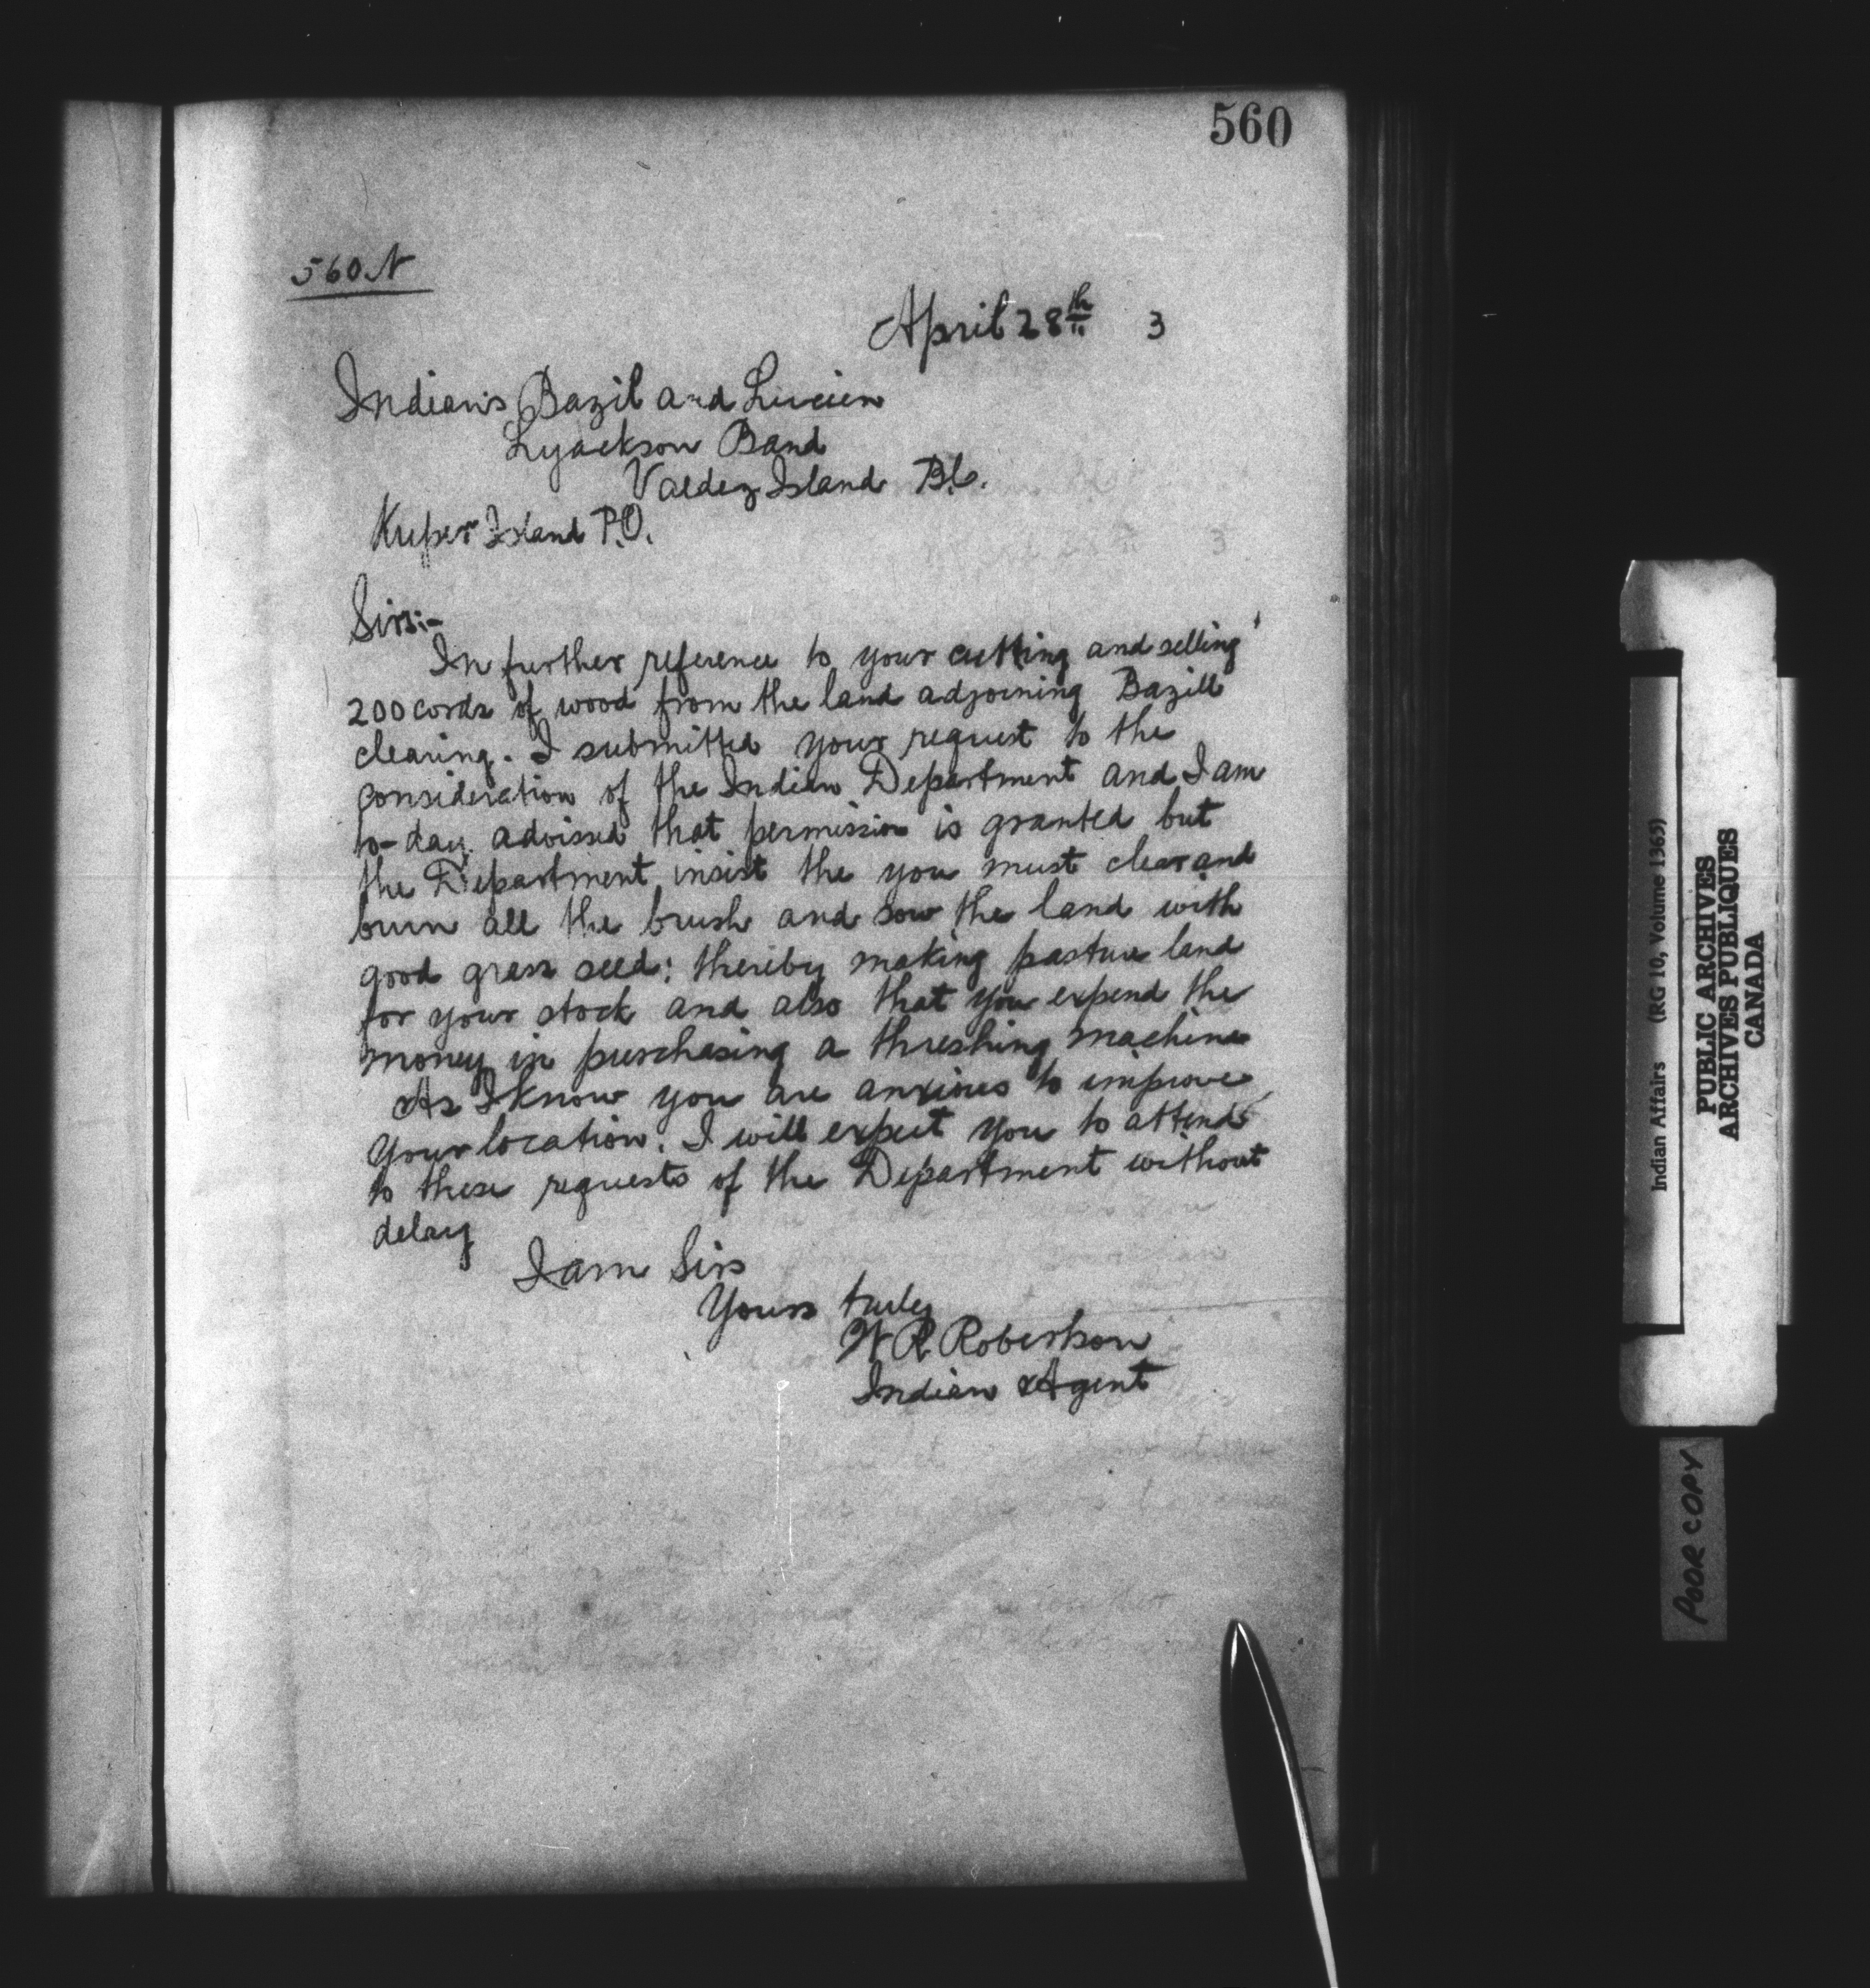 560
560 N
April 28th 3
Indians Bazil and Lucien
Lyackson Band
Valdez Island B.C.
Kuper Island P.O.
Sirs:-
In further reference to your cutting and selling
200 cords of wood from the land adjoining Bazill
clearing. I submitted your request to the
consideration of the Indian Department and I am
to-day advised that permission is granted but
the Department insist the you must clear and
burn all the brush and sow the land with
good grass seed; thereby making pasture land
for your stock and also that you expend the
money in purchasing a threshing machine
As I know you are anxious to improve
your location. I will expect you to attend
to these requests of the Department without
delay
I am Sirs
Yours truly
W R Robertson
Indian Agent
Indian Affairs (RG 10, Volume 1365)
PUBLIC ARCHIVES
ARCHIVES PUBLIQUES
CANADA
POOR COPY